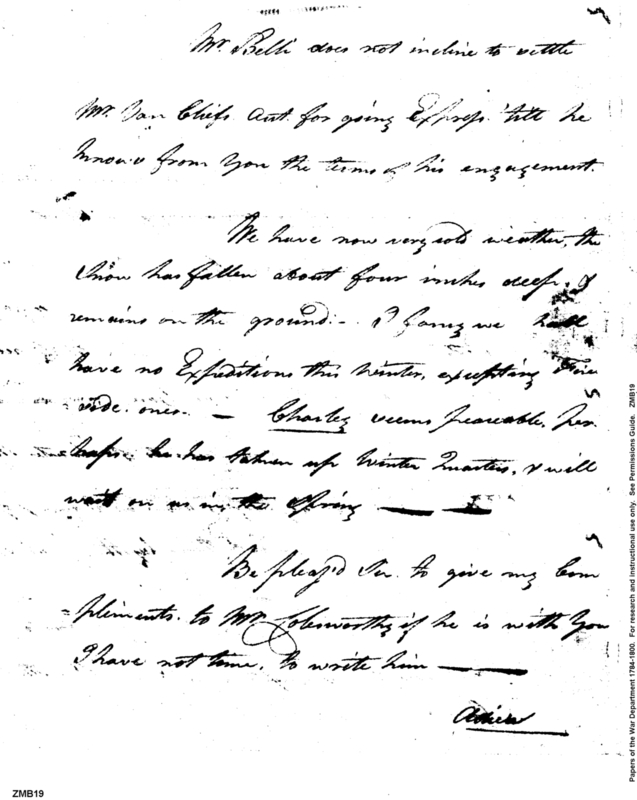 Mr. Belli does not incline to settle
Mr. Van Cliefs Acct. for going Express 'till he
knows from You the terms of his engagement.
We have now very cold weather, the
Snow has fallen about four inches deep, &
remains on the ground. - I fancy we shall
have no Expeditions this Winter, excepting Fire
side ones. — Charley seems peaceable, per
haps he has taken up Winter Quarters, & will
wait on us in the Spring — —
Be pleas'd Sir to give my Com
pliments to Mr. if he is with You
I have not time to write him —
Adieu
ZMB19
Papers of the War Department 1784-1800. For research and instructional use only. See Permissions Guide. ZMB19